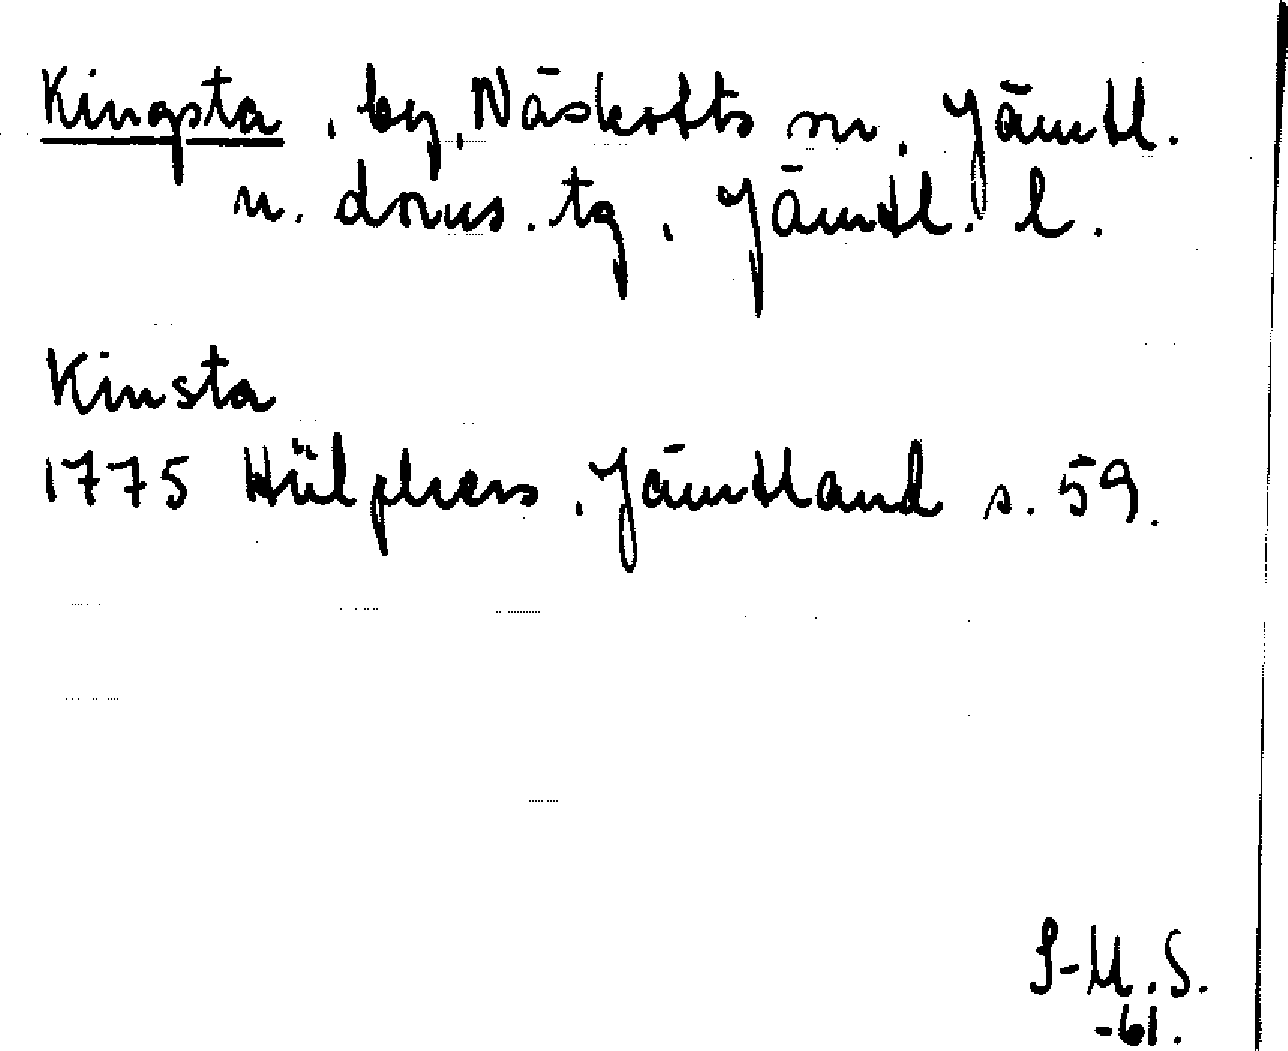 Kingsta, by, Näskotts sn, Jämtl.
n. doms. tg, Jämtl. l.
Kinsta
1775 Hülphers, Jämtland s. 59.
I-M.S.
-61.